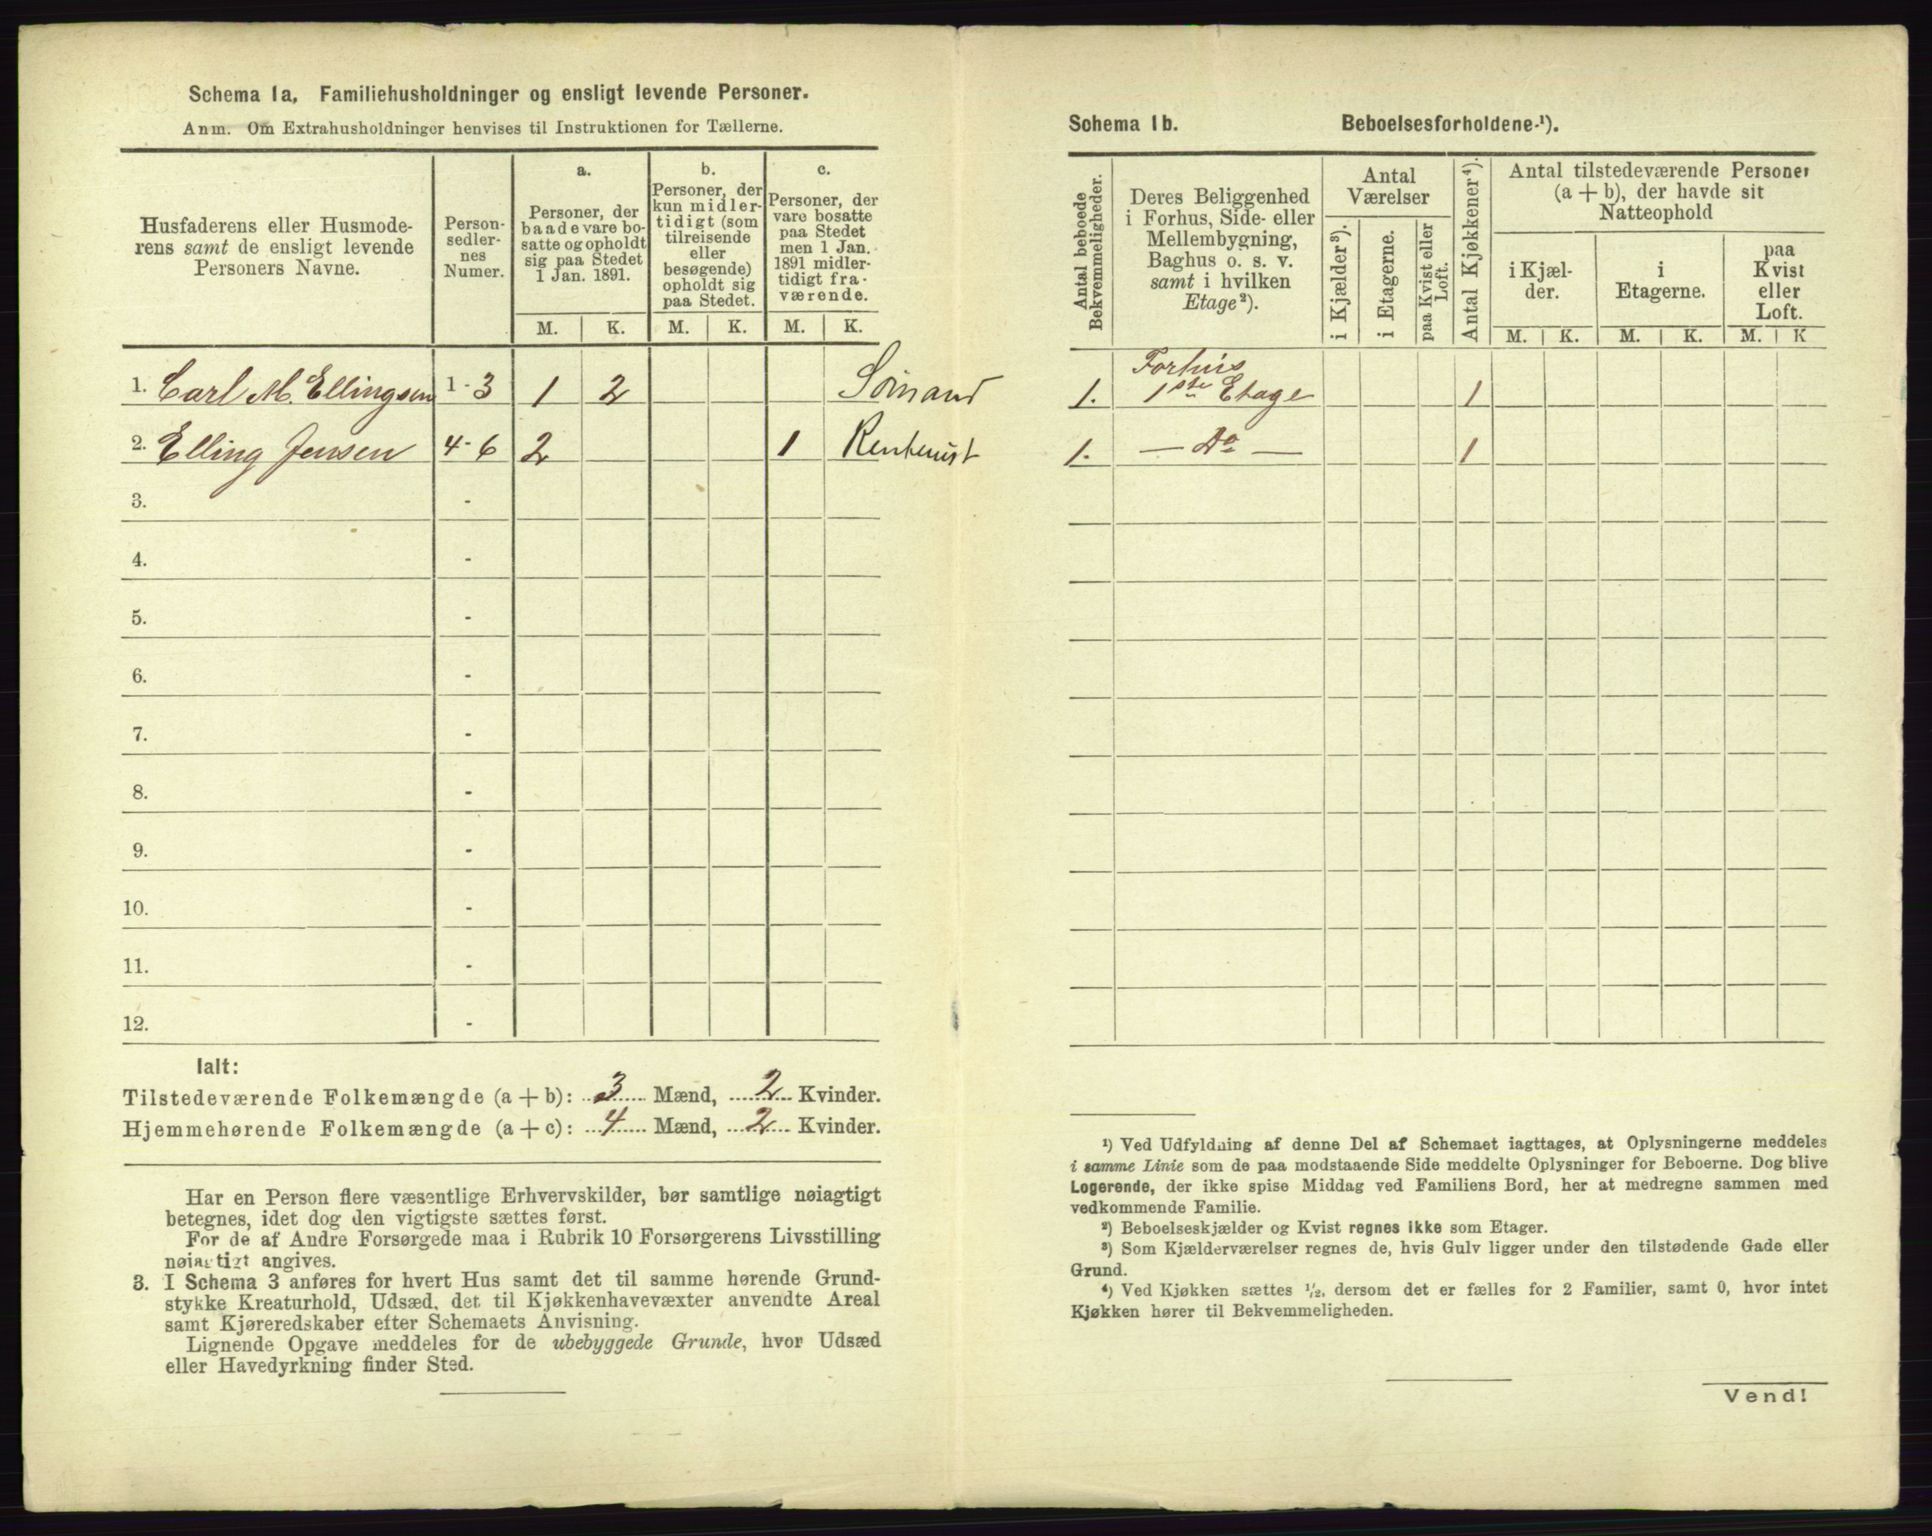 Schema 1a. Familiehusholdninger og ensligt levende Personer.
Anm. Om Extrahusholdninger henvises til Instruktionen for Tællerne.
Husfaderens eller Husmode-
rens samt de ensligt levende
Personers Navne.
Person-
sedler-
nes
Numer.
a.
Personer, der
baade vare bo-
satte og opholdt
sig paa Stedet
1 Jan. 1891.
b.
Personer, der
kun midler-
tidigt (som
tilreisende
eller
besøgende)
opholdt sig
paa Stedet.
c.
Personer, der
vare bosatte
paa Stedet
men 1 Jan.
1891 midler-
tidigt fra-
værende.
M. K. M. K. M. K.
1. Carl M. Ellingsen 1-3 1 2 Sømand
2. Elling Jensen 4-6 2 1 Rentenist
3. -
4. -
5. -
6. -
7. -
8. -
9. -
10. -
11. -
12. -
Ialt:
Tilstedeværende Folkemængde (a + b): 3 Mænd, 2 Kvinder.
Hjemmehørende Folkemængde (a + c): 4 Mænd, 2 Kvinder.
Har en Person flere væsentlige Erhvervskilder, bør samtlige nøiagtigt
betegnes, idet dog den vigtigste sættes først.
For de af Andre Forsørgede maa i Rubrik 10 Forsørgerens Livsstilling
nøiagtigt angives.
3. I Schema 3 anføres for hvert Hus samt det til samme hørende Grund-
stykke Kreaturhold, Udsæd, det til Kjøkkenhavevæxter anvendte Areal
samt Kjøreredskaber efter Schemaets Anvisning.
Lignende Opgave meddeles for de ubebyggede Grunde, hvor Udsæd
eller Havedyrkning finder Sted.
Schema 1b. Beboelsesforholdene-¹).
Antal beboede
Bekvemmeligheder.
Deres Beliggenhed
i Forhus, Side- eller
Mellembygning,
Baghus o. s. v.
samt i hvilken
Etage²).
Antal
Værelser
i Kjælder³).
i Etagerne.
paa Kvist eller
Loft.
Antal Kjøkkener⁴).
Antal tilstedeværende Personer
(a + b), der havde sit
Natteophold
i Kjæl-
der.
i
Etagerne.
paa
Kvist
eller
Loft.
M. K. M. K. M. K
Forhus
1. 1ste Etage 1
1. — Do — 1
¹) Ved Udfyldning af denne Del af Schemaet iagttages, at Oplysningerne meddeles
i samme Linie som de paa modstaaende Side meddelte Oplysninger for Beboerne. Dog blive
Logerende, der ikke spise Middag ved Familiens Bord, her at medregne sammen med
vedkommende Familie.
²) Beboelseskjælder og Kvist regnes ikke som Etager.
³) Som Kjælderværelser regnes de, hvis Gulv ligger under den tilstødende Gade eller
Grund.
⁴) Ved Kjøkken sættes ½, dersom det er fælles for 2 Familier, samt 0, hvor intet
Kjøkken hører til Bekvemmeligheden.
Vend!